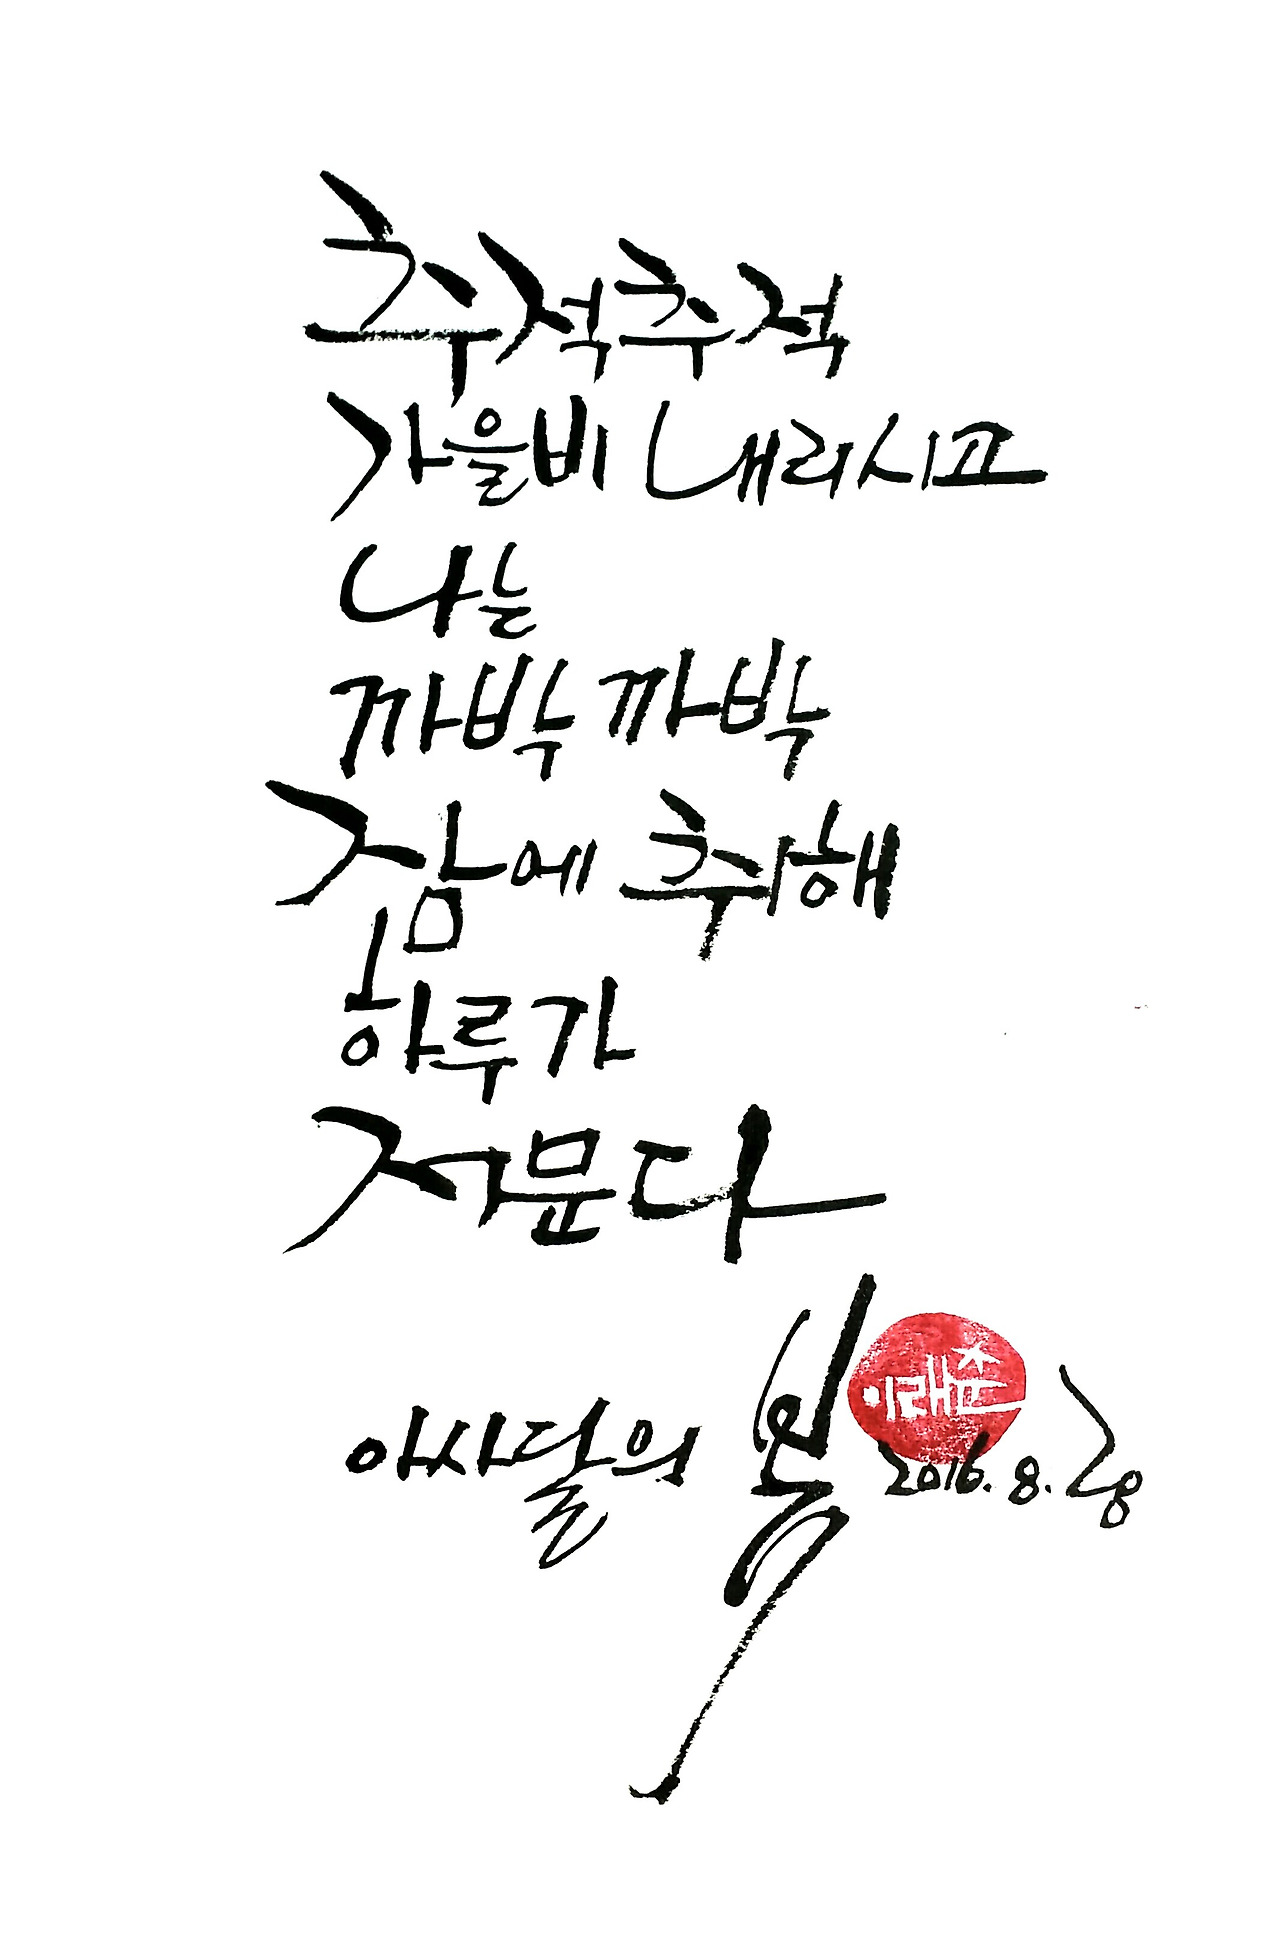 추적추적
가을비 내리시고
나는
까박까박
잠에 취해
하루가
저문다
이래춘
아사달의 봄
2016. 8. 28